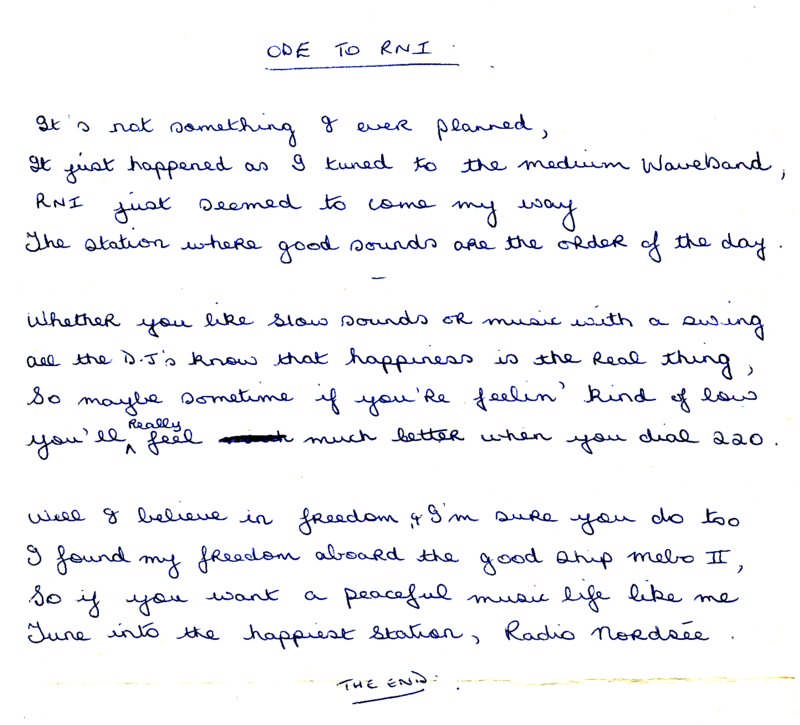 ODE TO RNI.
It's not something I ever planned,
It just happened as I tuned to the medium Waveband,
RNI just seemed to come my way
The station where good sounds are the order of the day.
–
Whether you like slow sounds or music with a swing
all the D.J's know that happiness is the Real thing,
So maybe sometime if you're feelin' kind of low
you'll Really feel much better when you dial 220.
Well I believe in freedom, & I'm sure you do too
I found my freedom aboard the good ship mebo II,
So if you want a peaceful music life like me
Tune into the happiest station, Radio Nordsée.
THE END.